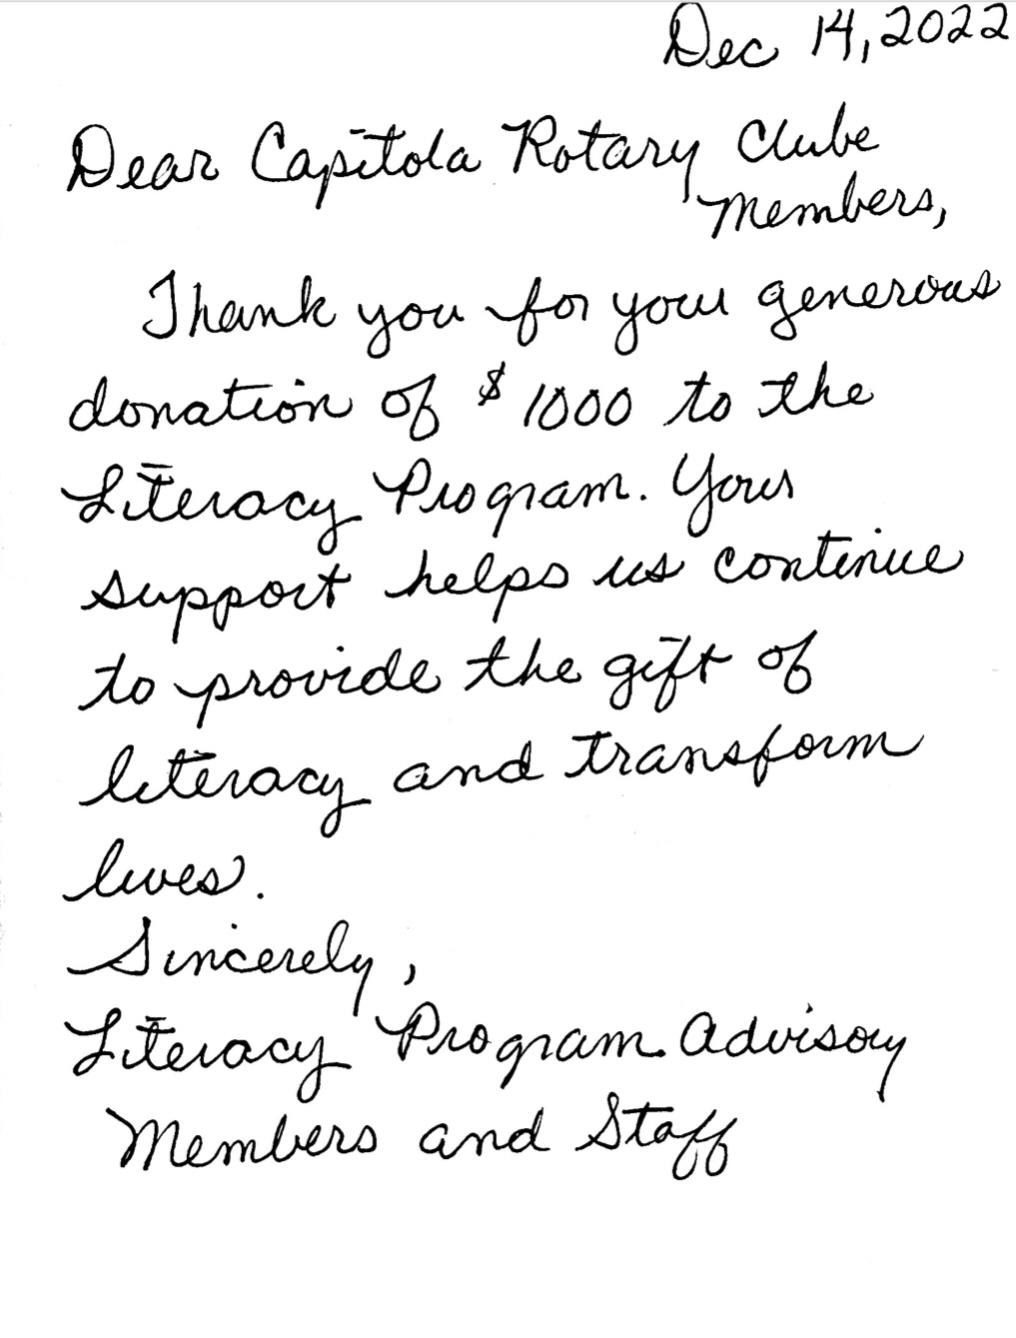 Dec 14, 2022
Dear Capitola Rotary Clube
Members,
Thank you for your generous
donation of $1000 to the
Literacy Program. Your
support helps us continue
to provide the gift of
literacy and transform
lives.
Sincerely,
Literacy Program Advisory
Members and Staff